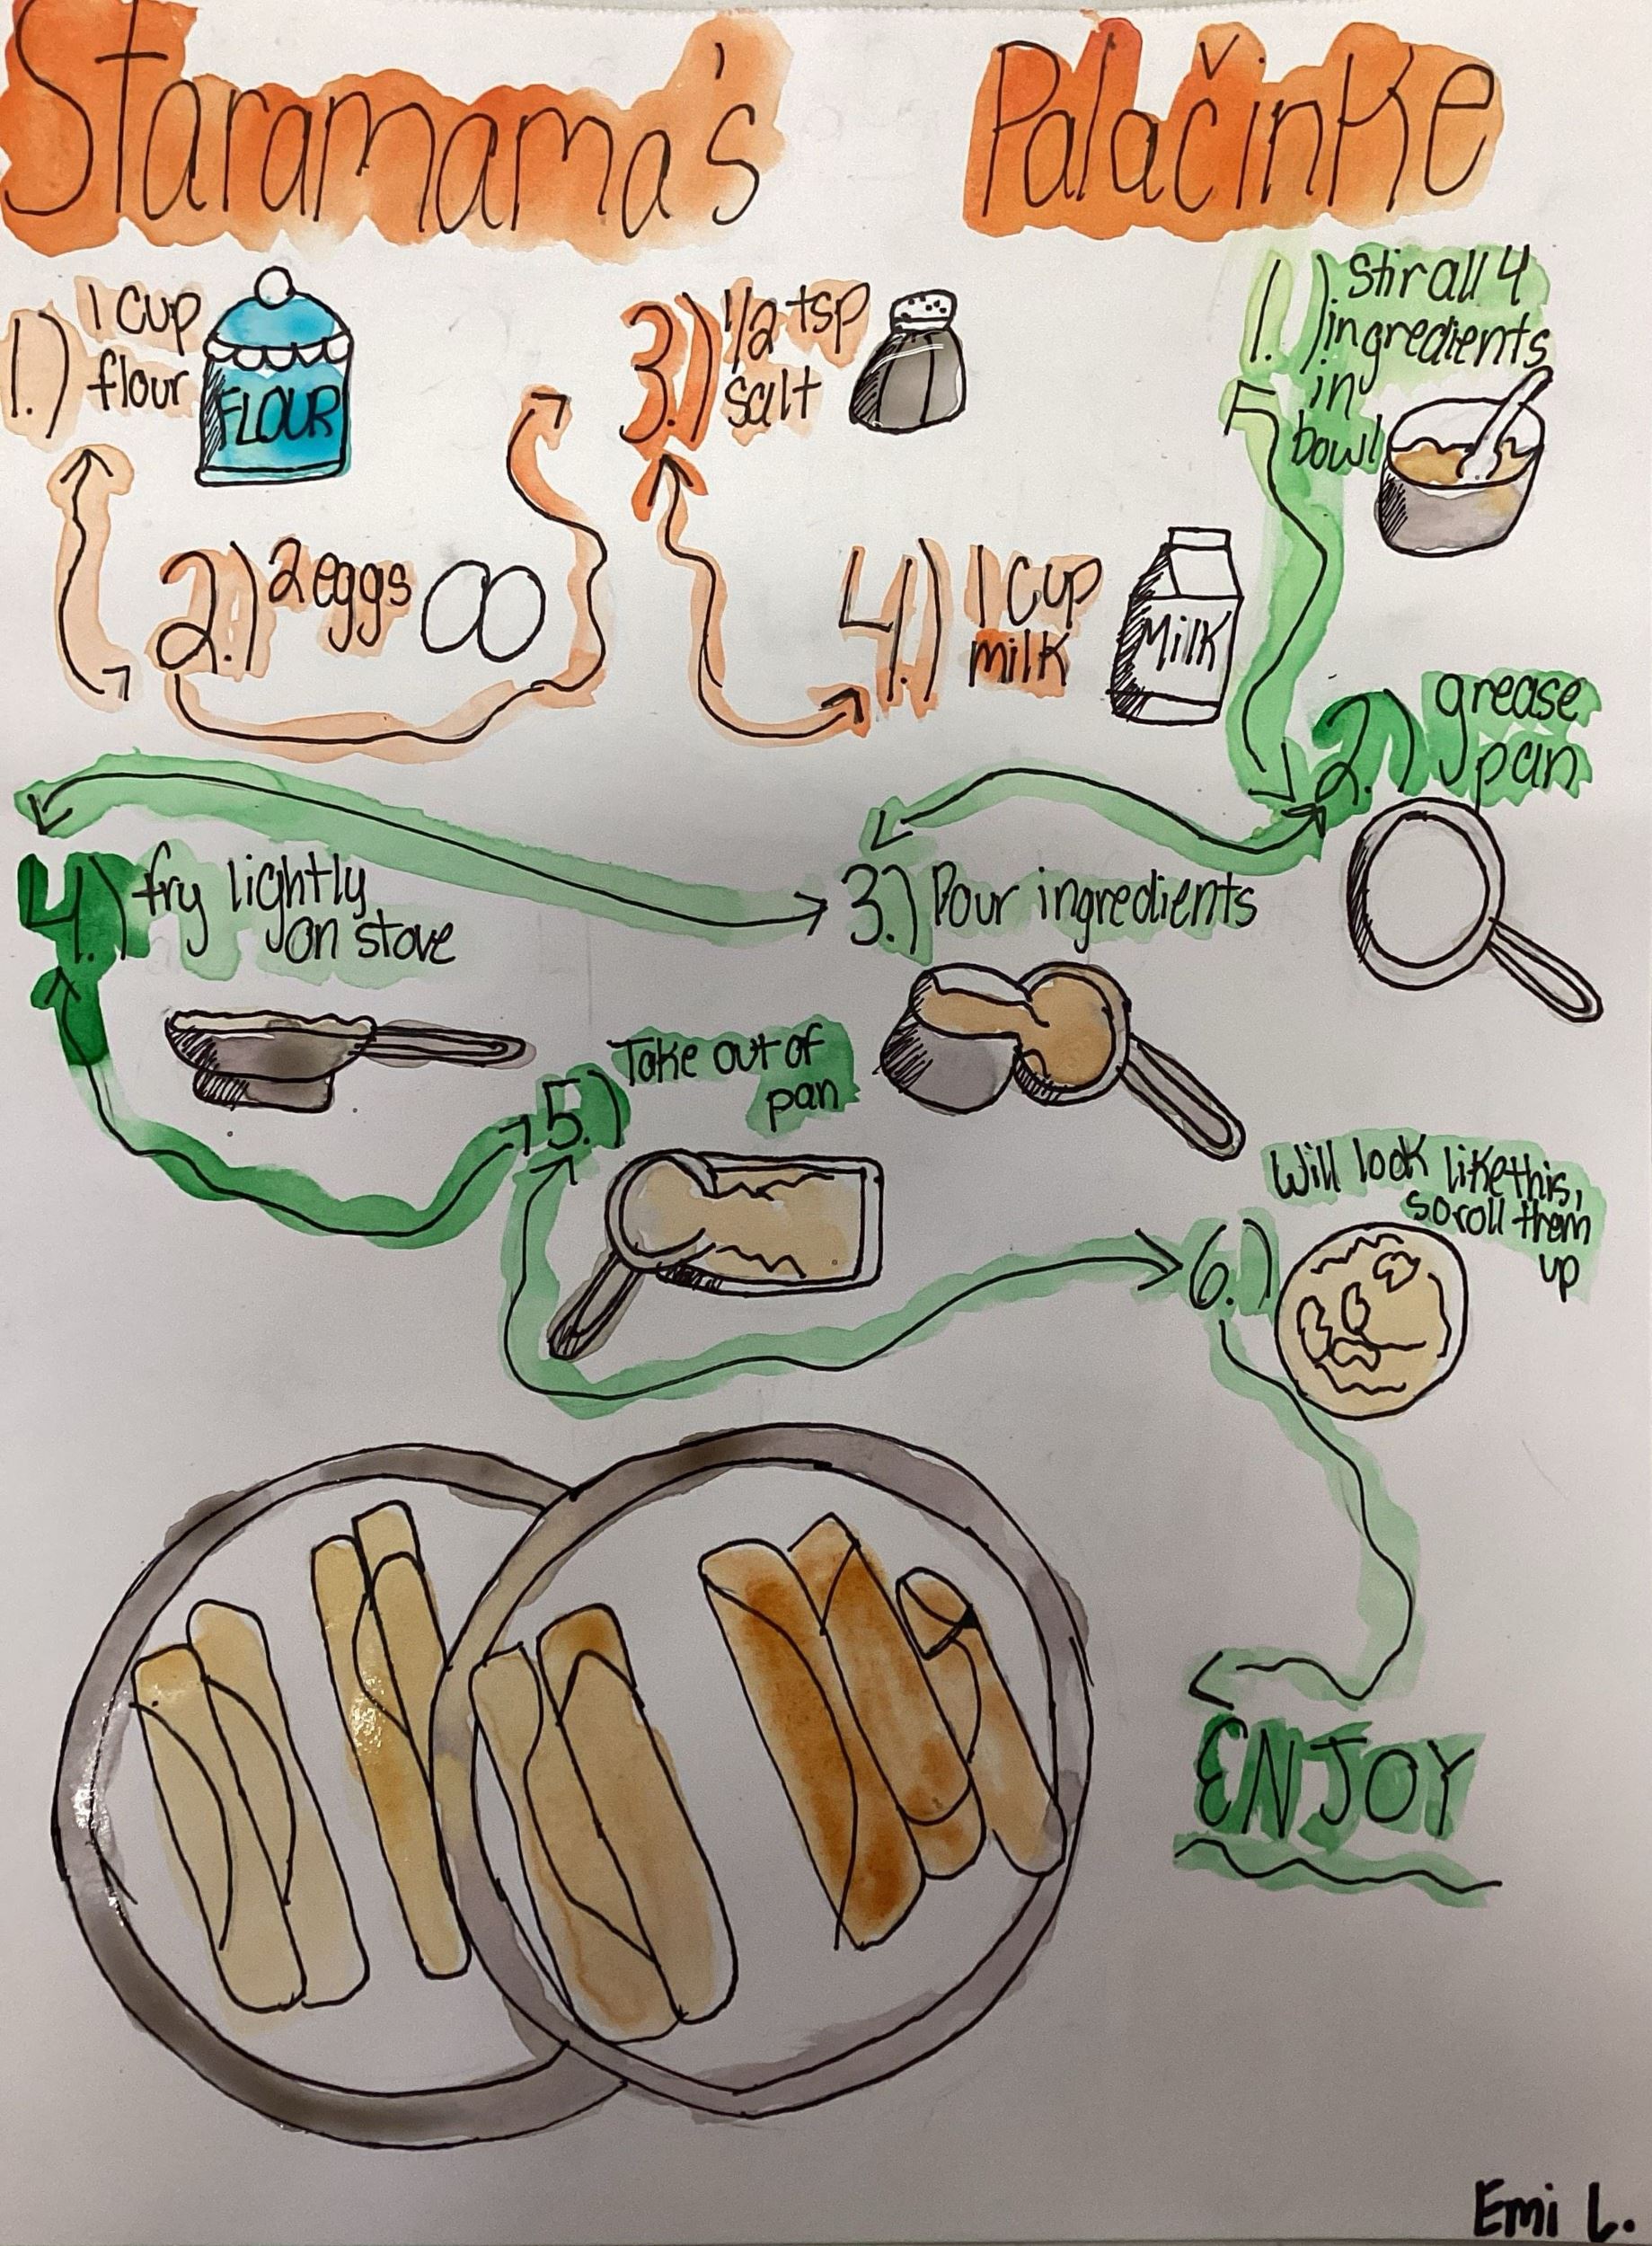 Staramama's Palačinke
1.) 1 cup
flour
FLOUR
2.) 2 eggs
3.) 1/2 tsp
salt
4.) 1 cup
milk
MILK
1.) Stir all 4
ingredients
in
bowl
2.) grease
pan
3.) Pour ingredients
4.) fry lightly
on stove
5.) Take out of
pan
6.) Will look like this,
so roll them
up
ENJOY
Emi L.